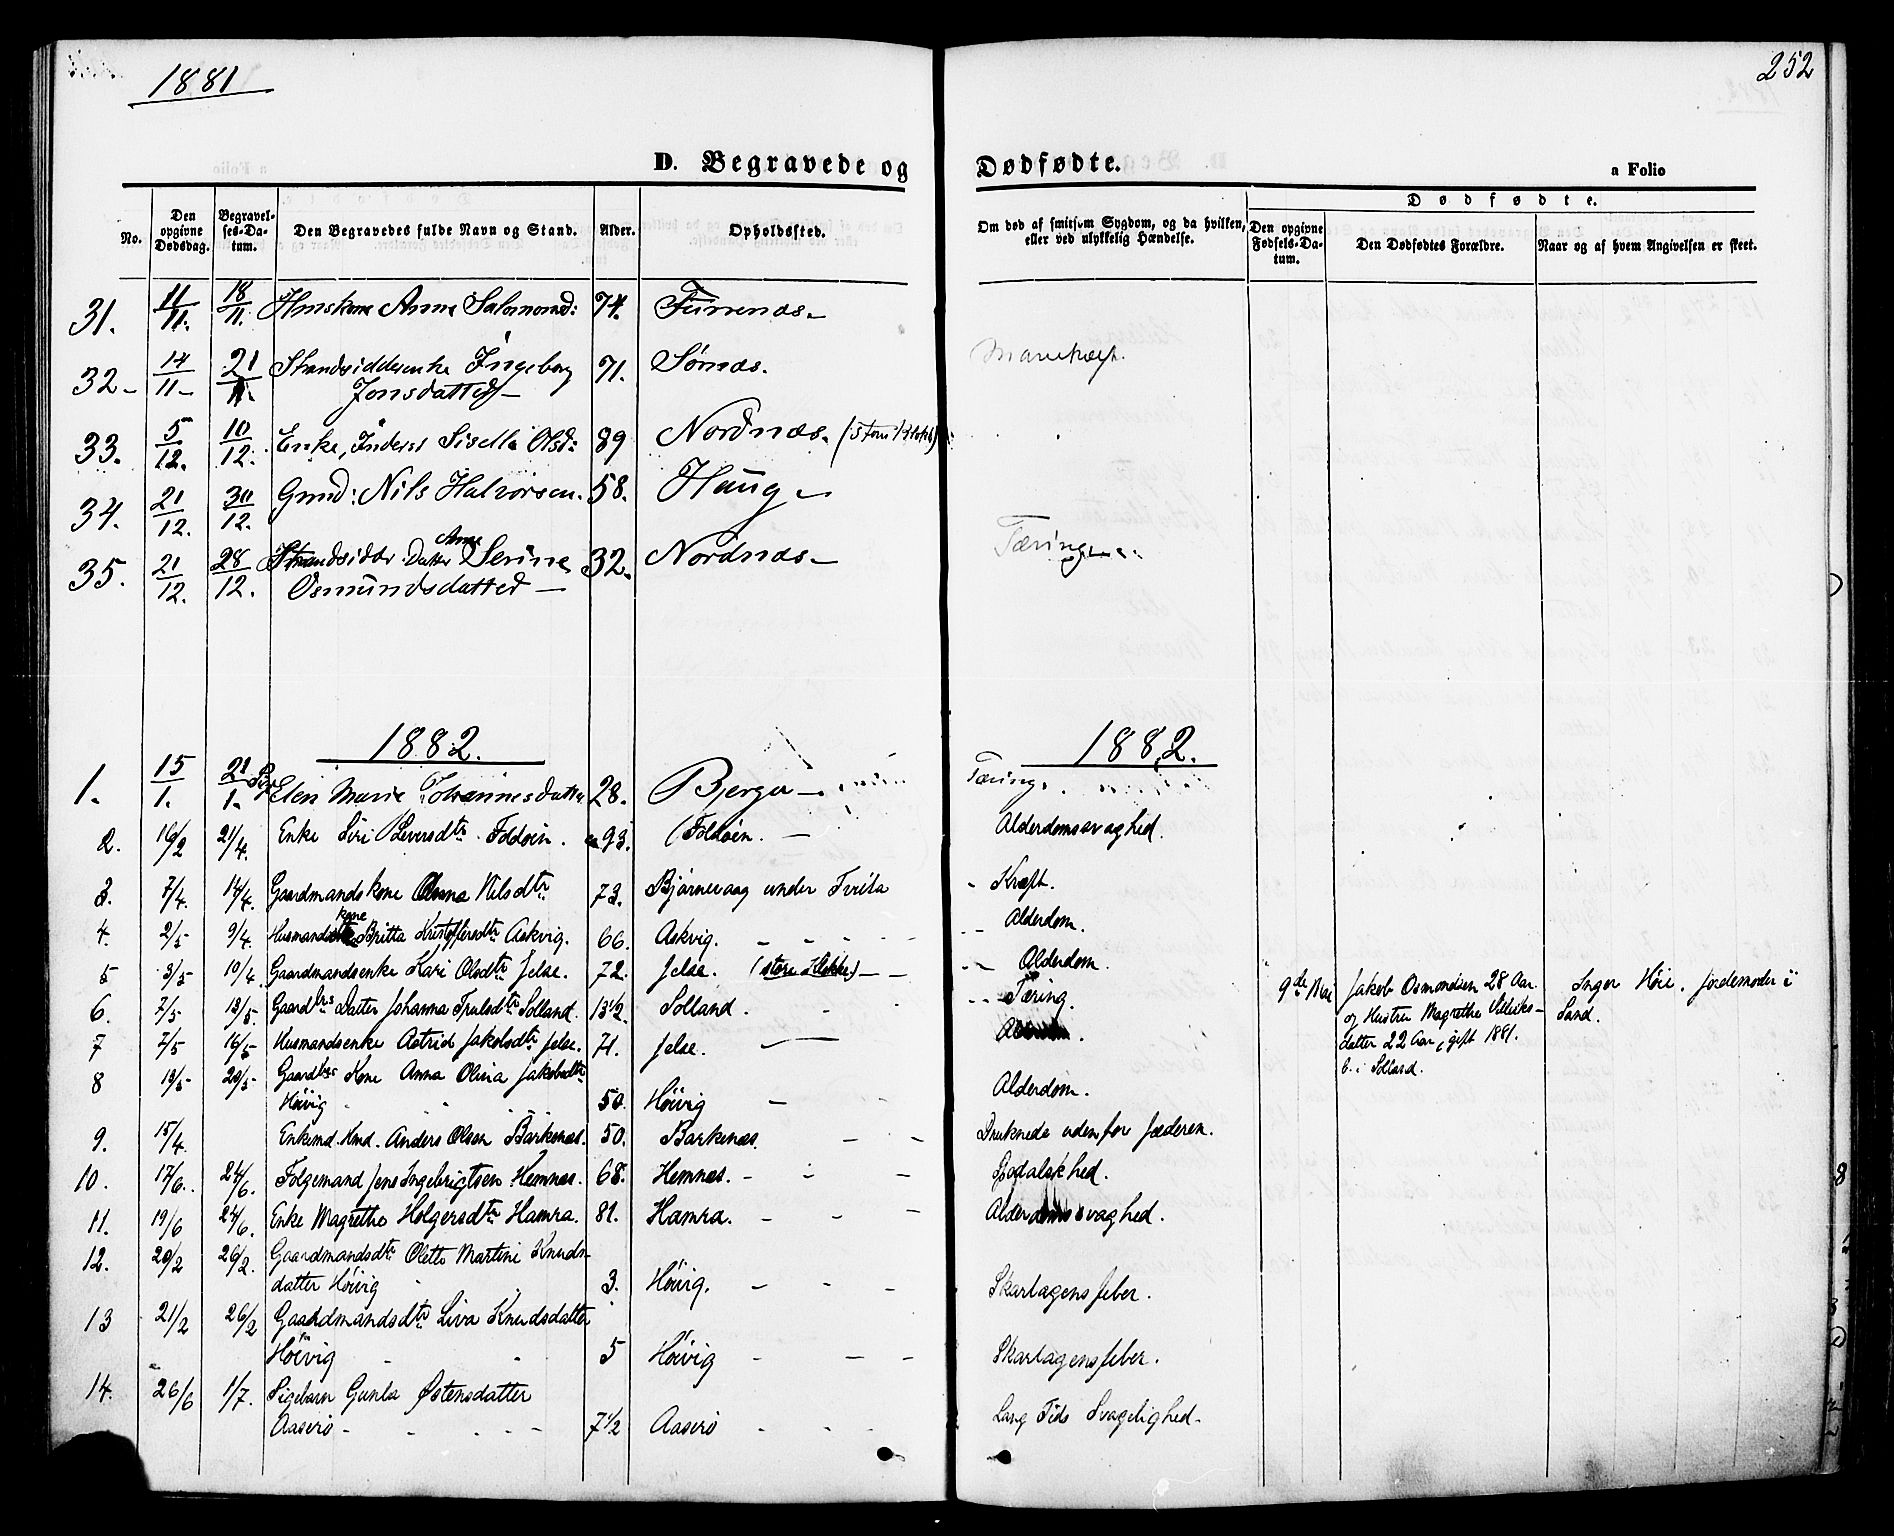 1881
252
D. Begravede og Dødfødte.
a Folio
Dødfødte.
No.
Den opgivne Dødsdag.
Begravelses-Datum.
Den Begravedes fulde Navn og Stand.
Alder.
Opholdssted.
Om død af smitsom Sygdom, og da hvilken, eller ved ulykkelig Hændelse.
Den opgivne Fødsels-Datum.
Den Dødfødtes Forældre.
Naar og af hvem Angivelsen er skeet.
31. 11/11. 18/11. Anne Salomonsd: 74.
32. 14/11 21/11. Strandsidderenke Ingeborg 71. Sørnæs.
Jonsdatter
33. 5/12. 10/12. Enke, Inderst Sisella Olsd: 89 Nordnæs.
34. 21/12. 30/12. Gmd: Nils Halvorsen. 58. Haug
35. 21/12. 28/12. Strandsidder Datter Anne Serine 32. Nordnæs Tæring
Osmundsdatter
1882. 1882.
1. 15/1. 21/1. Elen Marie Johannesdatter 28. Bjerga Tæring.
2. 16/2 21/4. Enke Siri Foldøen. 93. Foldøen. Alderdomssvaghed.
3. 7/4. 14/4. Gaardmandskone Nilsdtr 73. Bjørnevaag under Kræft.
4. 2/5 9/4. Husmandskone Britta Kristoffersdtr Askvig. 66. Askvig. Alderdom.
5 3/5 10/4. Gaardmandsenke Kari Olsdtr Jelse. 72. Jelse. (store Klokke) Alderdom.
6. 7/5 13/5. Gaardbrs Datter Johanna Trulsdtr Solland. 13 1/2. Solland. Tæring.
7 7/5 16/5 Husmandsenke Astrid Jakobsdtr Jelse. 71. Jelse.
8 13/5 20/5 Gaardbrs Kone Anna Olina Jakobsdtr
Höivig 50. Höivig Alderdom.
9. 15/4. Enkemd. Hmd. Anders Olsen Barkenæs. 50. Barkenæs. Druknede udenfor Jæderen.
10. 17/6. 24/6. Folgemand Jens Ingebrigtsen Hemnæs. 68. Hemnæs. Spedalskhed.
11. 19/6 24/6. Enke Magrethe Holgersdtr Hamra. 81. Hamra. Alderdomssvaghed.
12. 20/2 26/2. Gaardmandsdtr Olette Martine Knuds-
datter Höivig 3. Höivig. Skarlagensfeber.
13 21/2 26/2 Gaardmandsdtr Liva Knudsdatter
Höivig 5 Höivig Skarlagensfeber.
14. 26/6 1/7. Pigebarn Gunla Østensdatter
Aaserö 7 1/2 Aaserö Lang Tids Svagelighed.
9de Mai
Jakob Osmundsen 28 Aar
og Hustru Magrethe
datter 22 Aar, gift 1881.
b. i Solland.
Inger Höie. Jordemoder i
Sand.